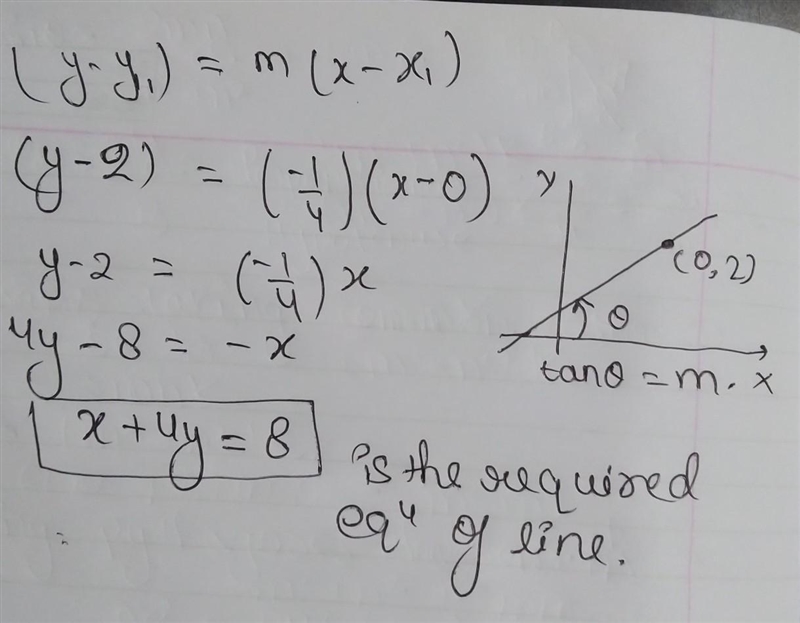 (y-y₁) = m(x-x₁)
(y-2) = (-1/4)(x-0)
y-2 = (-1/4)x
4y-8 = -x
x+4y = 8
is the required
eqⁿ of line.
y
(0,2)
θ
x
tanθ = m.